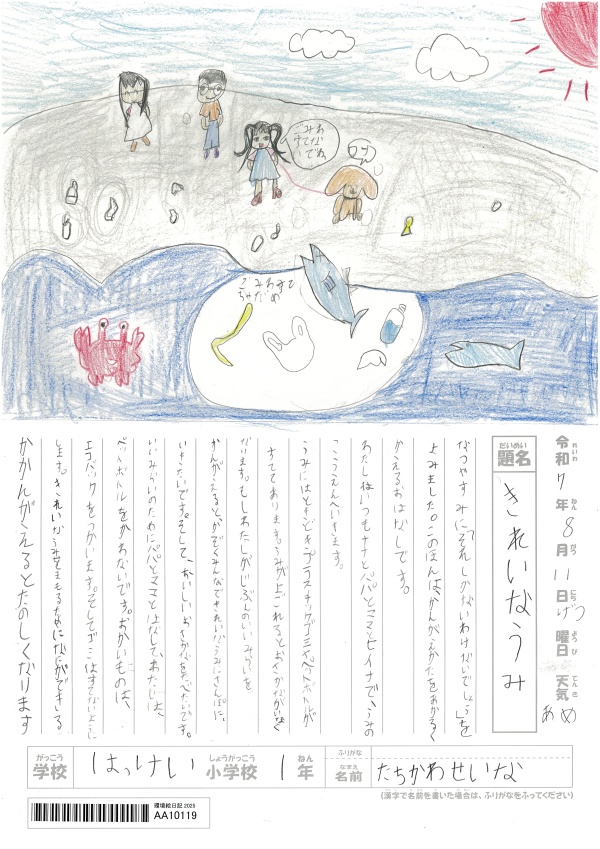 わ
みなで
すてないでね
ごみわすて
ちゃだめ
令和7年8月11日げつ曜日 天気あめ
れいわ ねん がつ にち ようび てんき
だいめい
題名
きれいなうみ
なつやすみに「それしかないわけないでしょう」を
よみました。このほんは、かんがえかたをあかるく
かえるおはなしです。
わたしはいつもナナとパパとママとセイナで、うみの
こうえんへいきます。
うみにはときどきプラスチックゴミ、ペットボトルが
すててあります。うみがよごれるとおさかながいなく
なります。もしわたしがじぶんのいいみらいを
かんがえるとかぞくみんなできれいなうみにさんぽに、
いきたいです。そして、おいしいおさかなをたべたいです。
いいみらいのためにパパとママとはなして、わたしは、
ペットボトルをかわないです。おかいものは、
エコバックをつかいます。そしてゴミはすてないように
します。きれいなうみをまもるためになにができる
かかんがえるとたのしくなります
がっこう
学校
はっけい
しょうがっこう
小学校
1
ねん
年
ふりがな
なまえ
名前
たちかわせいな
(漢字で名前を書いた場合は、ふりがなをふってください)
環境絵日記 2025
AA10119